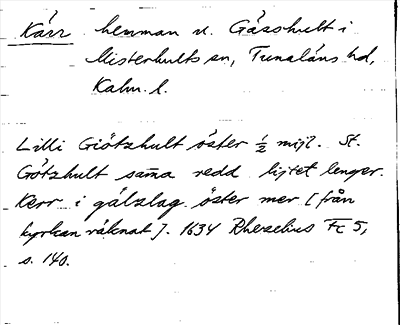 Kärr hemman n. Gåsshult i
Misterhults sn, Tunaläns hd,
Kalm. l.
Lilli Giötzhult öster ½ mijl. St.
Götzhult sama redd lijtet lenger.
Kerr i gålzlag öster mer [från
kyrkan räknat]. 1634 Rhezelius Fc 5,
s. 140.